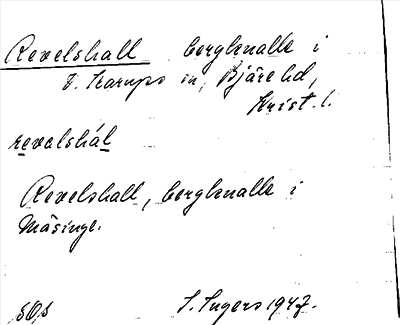 Revelshall bergknalle i
V. Karups sn, Bjäre hd,
Krist. l.
revalshál
Revelshall, bergknalle i
Måsinge.
S. Ingers 1947.